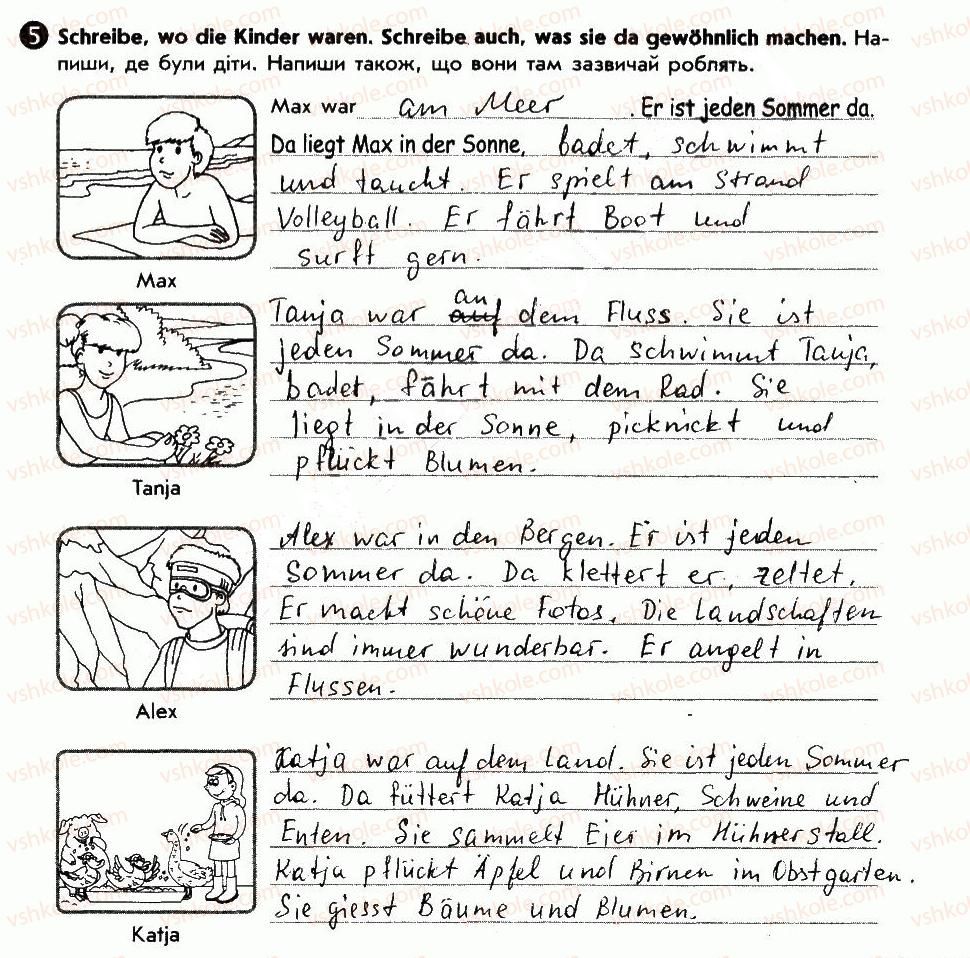 5 Schreibe, wo die Kinder waren. Schreibe auch, was sie da gewöhnlich machen. На-
пиши, де були діти. Напиши також, що вони там зазвичай роблять.
Max war am Meer. Er ist jeden Sommer da.
Da liegt Max in der Sonne, badet, schwimmt
und taucht. Er spielt am Strand
Volleyball. Er fährt Boot und
surft gern.
Max
Tanja war auf an dem Fluss. Sie ist
jeden Sommer da. Da schwimmt Tanja,
badet, fährt mit dem Rad. Sie
liegt in der Sonne, picknickt und
pflückt Blumen.
Tanja
Alex war in den Bergen. Er ist jeden
Sommer da. Da klettert er, zeltet.
Er macht schöne Fotos. Die Landschaften
sind immer wunderbar. Er angelt in
Flussen.
Alex
Katja war auf dem Land. Sie ist jeden Sommer
da. Da füttert Katja Hühner, Schweine und
Enten. Sie sammelt Eier im Hühnerstall.
Katja pflückt Äpfel und Birnen im Obstgarten.
Sie giesst Bäume und Blumen.
Katja
vshkole.com